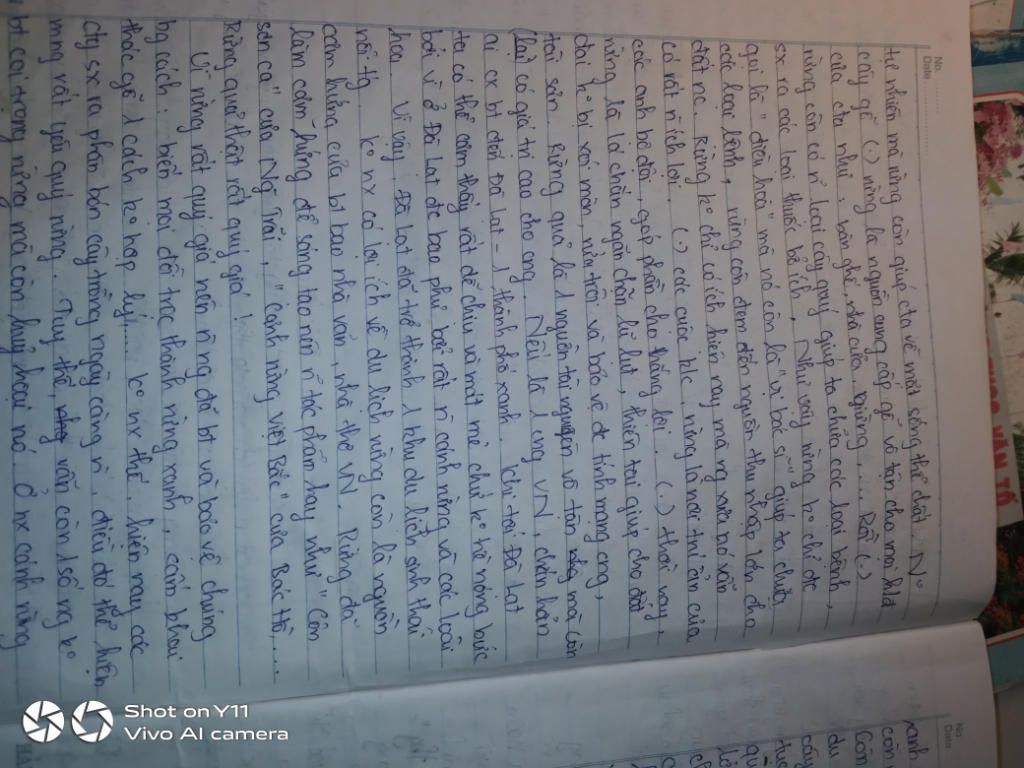 No.
Date
tự nhiên mà rừng còn giúp cta về mặt sống thể chất. Nº
cây gỗ (.) rừng là nguồn cung cấp gỗ vô tận cho mọi hđ
của cta như: bàn ghế, nhà cửa, giường,... Rồi (.)
rừng còn có n loại cây quý giúp ta chữa các loại bệnh,
sx ra các loại thuốc bổ ích. Như vậy rừng kº chỉ đc
gọi là "điều hoà" mà nó còn là "vị bác sĩ" giúp ta chữa
các loại bệnh, rừng còn đem đến nguồn thu nhập lớn cho
đất nc. Rừng kº chỉ có ích hiện nay mà ng xưa nó vẫn
có rất n ích lợi. (.) các cuộc k/c, rừng là nơi trú ẩn của
các anh bộ đội, góp phần cho thắng lợi. (.) thời nay,
rừng là lá chắn ngăn chặn lũ lụt, thiên tai giúp cho đất
đai kº bị xói mòn, rửa trôi và bảo vệ đc tính mạng cng,
tài sản. Rừng quả là 1 nguồn tài nguyên vô tận mà còn
có giá trị cao cho cng. Nếu là 1 cng VN, chắc hẳn
ai cx bt đến Đà Lạt - 1 thành phố xanh. Khi tới Đà Lạt
ta có thể cảm thấy rất dễ chịu và mát mẻ chứ kº hề nóng bức
bởi vì ở Đà Lạt đc bao phủ bởi rất n cánh rừng và các loài
hoa. Vì vậy, Đà Lạt đã trở thành 1 khu du lịch sinh thái
nổi tg. kº nx có lợi ích về du lịch rừng còn là nguồn
cảm hứng của bt bao nhà văn, nhà thơ VN. Rừng đã
làm cảm hứng để sáng tạo nên n tác phẩm hay như "Côn
sơn ca" của Ng Trãi, "Cảnh rừng Việt Bắc" của Bác Hồ,...
Rừng quả thật rất quý giá!
Vì rừng rất quý giá nên n ng đã bt và bảo vệ chúng
bg cách: biến mọi đồi trọc thành rừng xanh, cấm khai
thác gỗ 1 cách kº hợp lý... kº nx thế, hiện nay các
cty sx ra phân bón cây trồng ngày càng n, điều đó thể hiện
mng rất yêu quý rừng. Tuy thế, vẫn còn 1 số ng kº
bt coi trọng rừng mà còn huỷ hoại nó. Ở nx cánh rừng
No
Date
Shot on Y11
Vivo AI camera